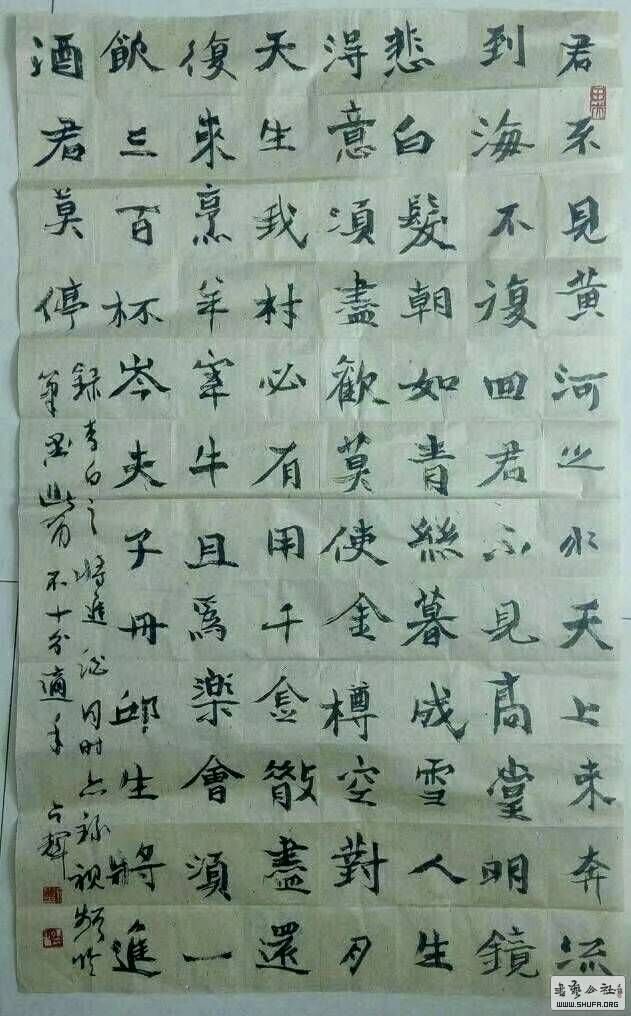 君不見黄河之水天上来奔流
到海不復囬君不見高堂明鏡
悲白髮朝如青絲暮成雪人生
得意須盡歡莫使金樽空對月
天生我材必有用千金散盡還
復來烹羊宰牛且爲樂會須一
飲三百杯岑夫子丹邱生將進
酒君莫停
録李白之將進酒同時亦録視頻惟
筆墨皆不十分適手
書藝公社
WWW.SHUFA.ORG